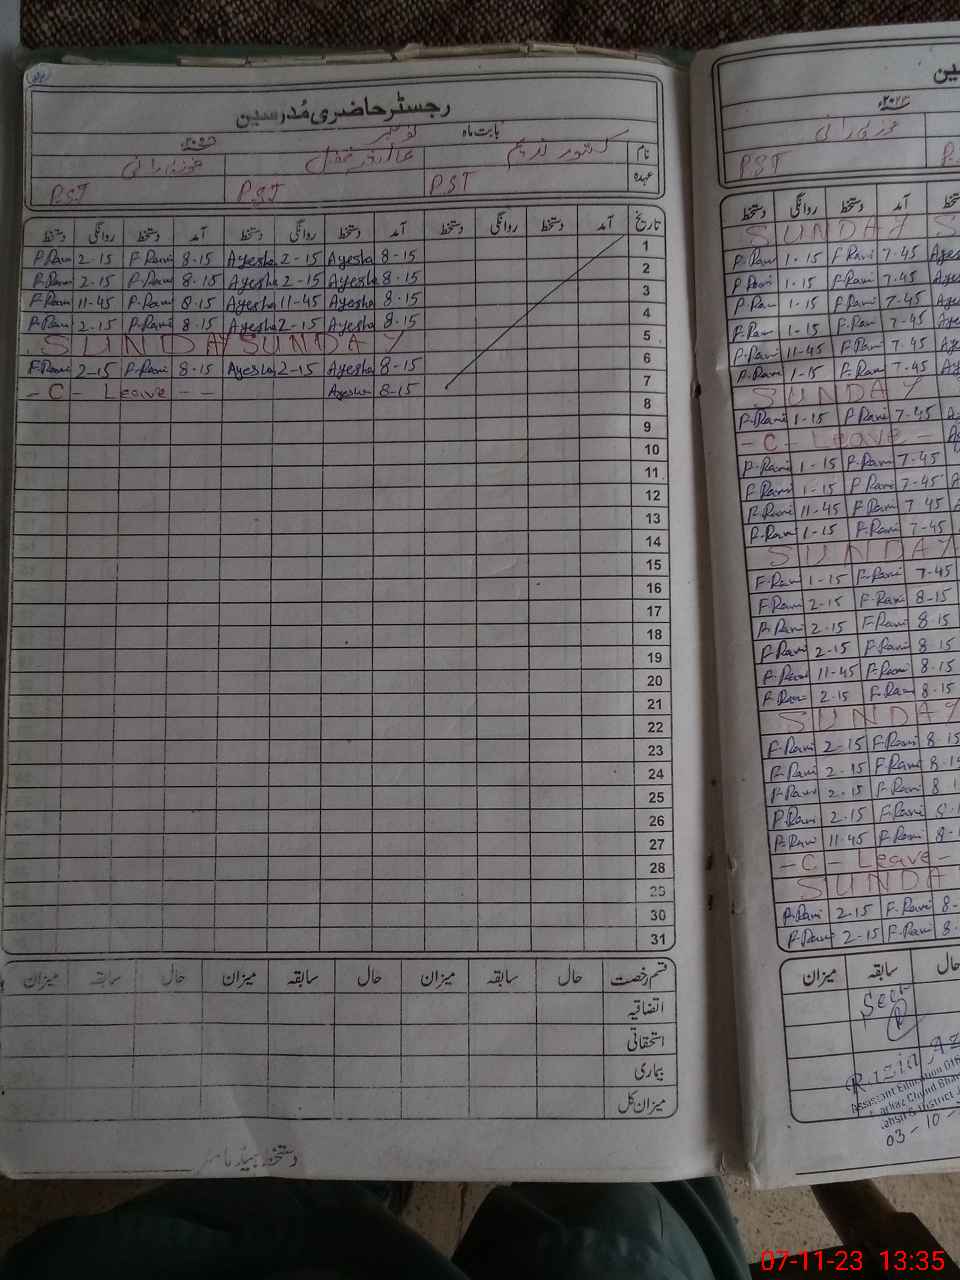 رجسٹر حاضری مُدرسین
بابت ماہ نومبر ۲۰۲۳ء
نام کشور نسیم
عہدہ PST PST PST
تاریخ آمد دستخط روانگی دستخط آمد دستخط روانگی دستخط آمد دستخط روانگی دستخط
F-Rani 2-15 F-Rani 8-15 Ayesha 2-15 Ayesha 8-15 1
F-Rani 2-15 F-Rani 8-15 Ayesha 2-15 Ayesha 8-15 2
F-Rani 11-45 F-Rani 8-15 Ayesha 11-45 Ayesha 8-15 3
F-Rani 2-15 F-Rani 8-15 Ayesha 2-15 Ayesha 8-15 4
SUNDAY SUNDAY 5
F-Rani 2-15 F-Rani 8-15 Ayesha 2-15 Ayesha 8-15 6
- C - Leave - - Ayesha 8-15 7
8
9
10
11
12
13
14
15
16
17
18
19
20
21
22
23
24
25
26
27
28
29
30
31
قسم رخصت حال سابقہ میزان حال سابقہ میزان حال سابقہ میزان
اتفاقیہ
استحقاقی
بیماری
میزان کل
دستخط ہیڈ ماسٹر
PST
آمد دستخط روانگی دستخط
SUNDAY
F-Rani 1-15 F-Rani 7-45
F-Rani 1-15 F-Rani 7-45
F-Rani 1-15 F-Rani 7-45
F-Rani 1-15 F-Rani 7-45
F-Rani 11-45 F-Rani 7-45
F-Rani 1-15 F-Rani 7-45
SUNDAY
F-Rani 1-15 F-Rani 7-45
- C - Leave -
F-Rani 1-15 F-Rani 7-45
F-Rani 1-15 F-Rani 7-45
F-Rani 11-45 F-Rani 7-45
F-Rani 1-15 F-Rani 7-45
SUNDAY
F-Rani 1-15 F-Rani 7-45
F-Rani 2-15 F-Rani 8-15
F-Rani 2-15 F-Rani 8-15
F-Rani 2-15 F-Rani 8-15
F-Rani 11-45 F-Rani 8-15
F-Rani 2-15 F-Rani 8-15
SUNDAY
F-Rani 2-15 F-Rani 8-15
F-Rani 2-15 F-Rani 8-15
F-Rani 2-15 F-Rani 8
F-Rani 2-15 F-Rani 8
F-Rani 11-45 F-Rani 8
- C - Leave -
SUNDA
F-Rani 2-15 F-Rani 8-
F-Rani 2-15 F-Rani 8-
حال سابقہ میزان
Seen
Razia
Assistant Education
03-10-
07-11-23 13:35